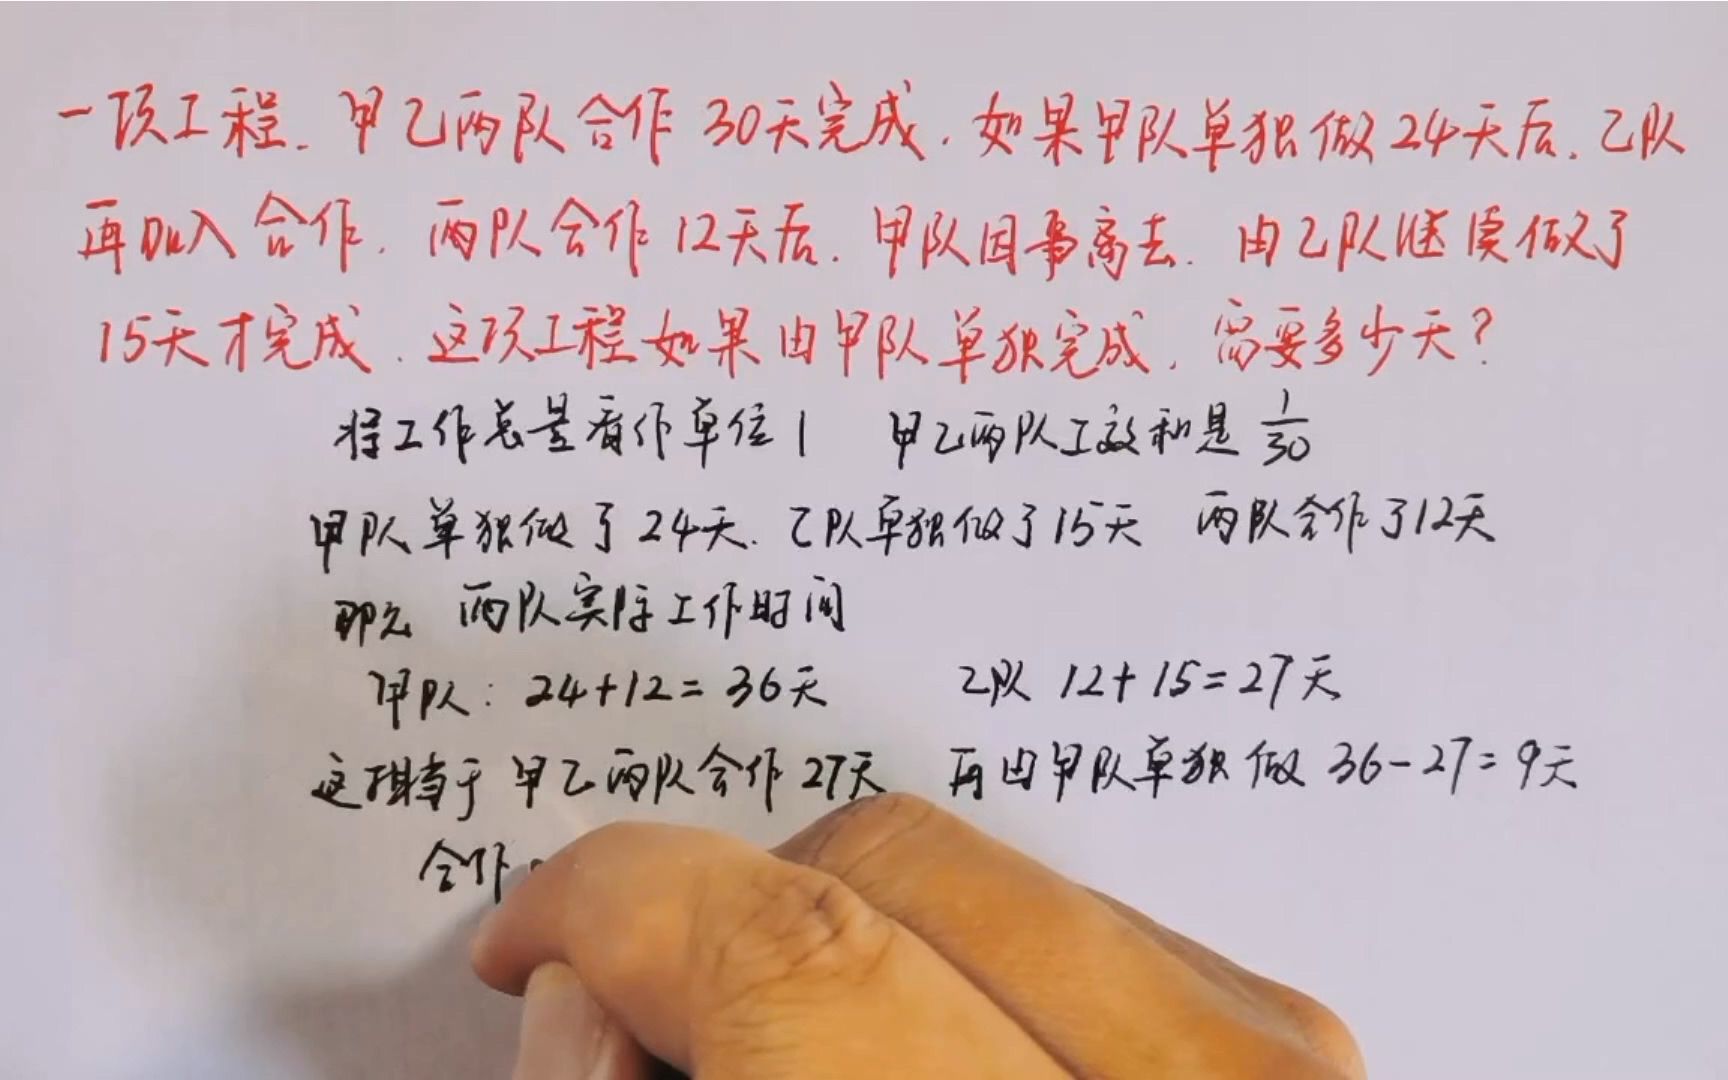 一项工程.甲乙两队合作30天完成.如果甲队单独做24天后.乙队
再加入合作.两队合作12天后.甲队因事离去.由乙队继续做了
15天才完成.这项工程如果由甲队单独完成,需要多少天?
将工作总量看作单位1 甲乙两队工效和是1/30
甲队单独做了24天.乙队单独做了15天 两队合作了12天
那么 两队实际工作时间
甲队:24+12=36天 乙队 12+15=27天
这相当于甲乙两队合作27天 再由甲队单独做36-27=9天
合作